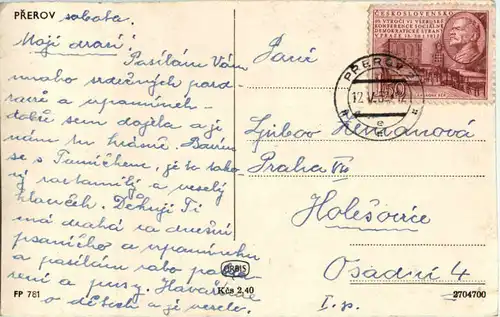 PŘEROV
sobota.
Moji drazí!
Posílám Vám
mnoho srdečných pozd
ravů a vzpomínek
dobře sem dojela a je
nám tu krásně. Bavím
se s Tomíčkem, je to tako
vý roztomilý a veselý
klouček. Děkuji Ti
má drahá za dnešní
psaníčko a vzpomínku
a posílám vobo
a pusy.
o dětech a je vesele.
FP 781
ORBIS
Kčs 2,40
ČESKOSLOVENSKO
40. VÝROČÍ VI. VŠERUSKÉ
KONFERENCE SOCIÁLNĚ
DEMOKRATICKÉ STRANY
V PRAZE 18.-30.I.1912
PŘEROV
Paní
Ljubov
Praha VII
Holešovice
Osadní 4
I.p.
2704700